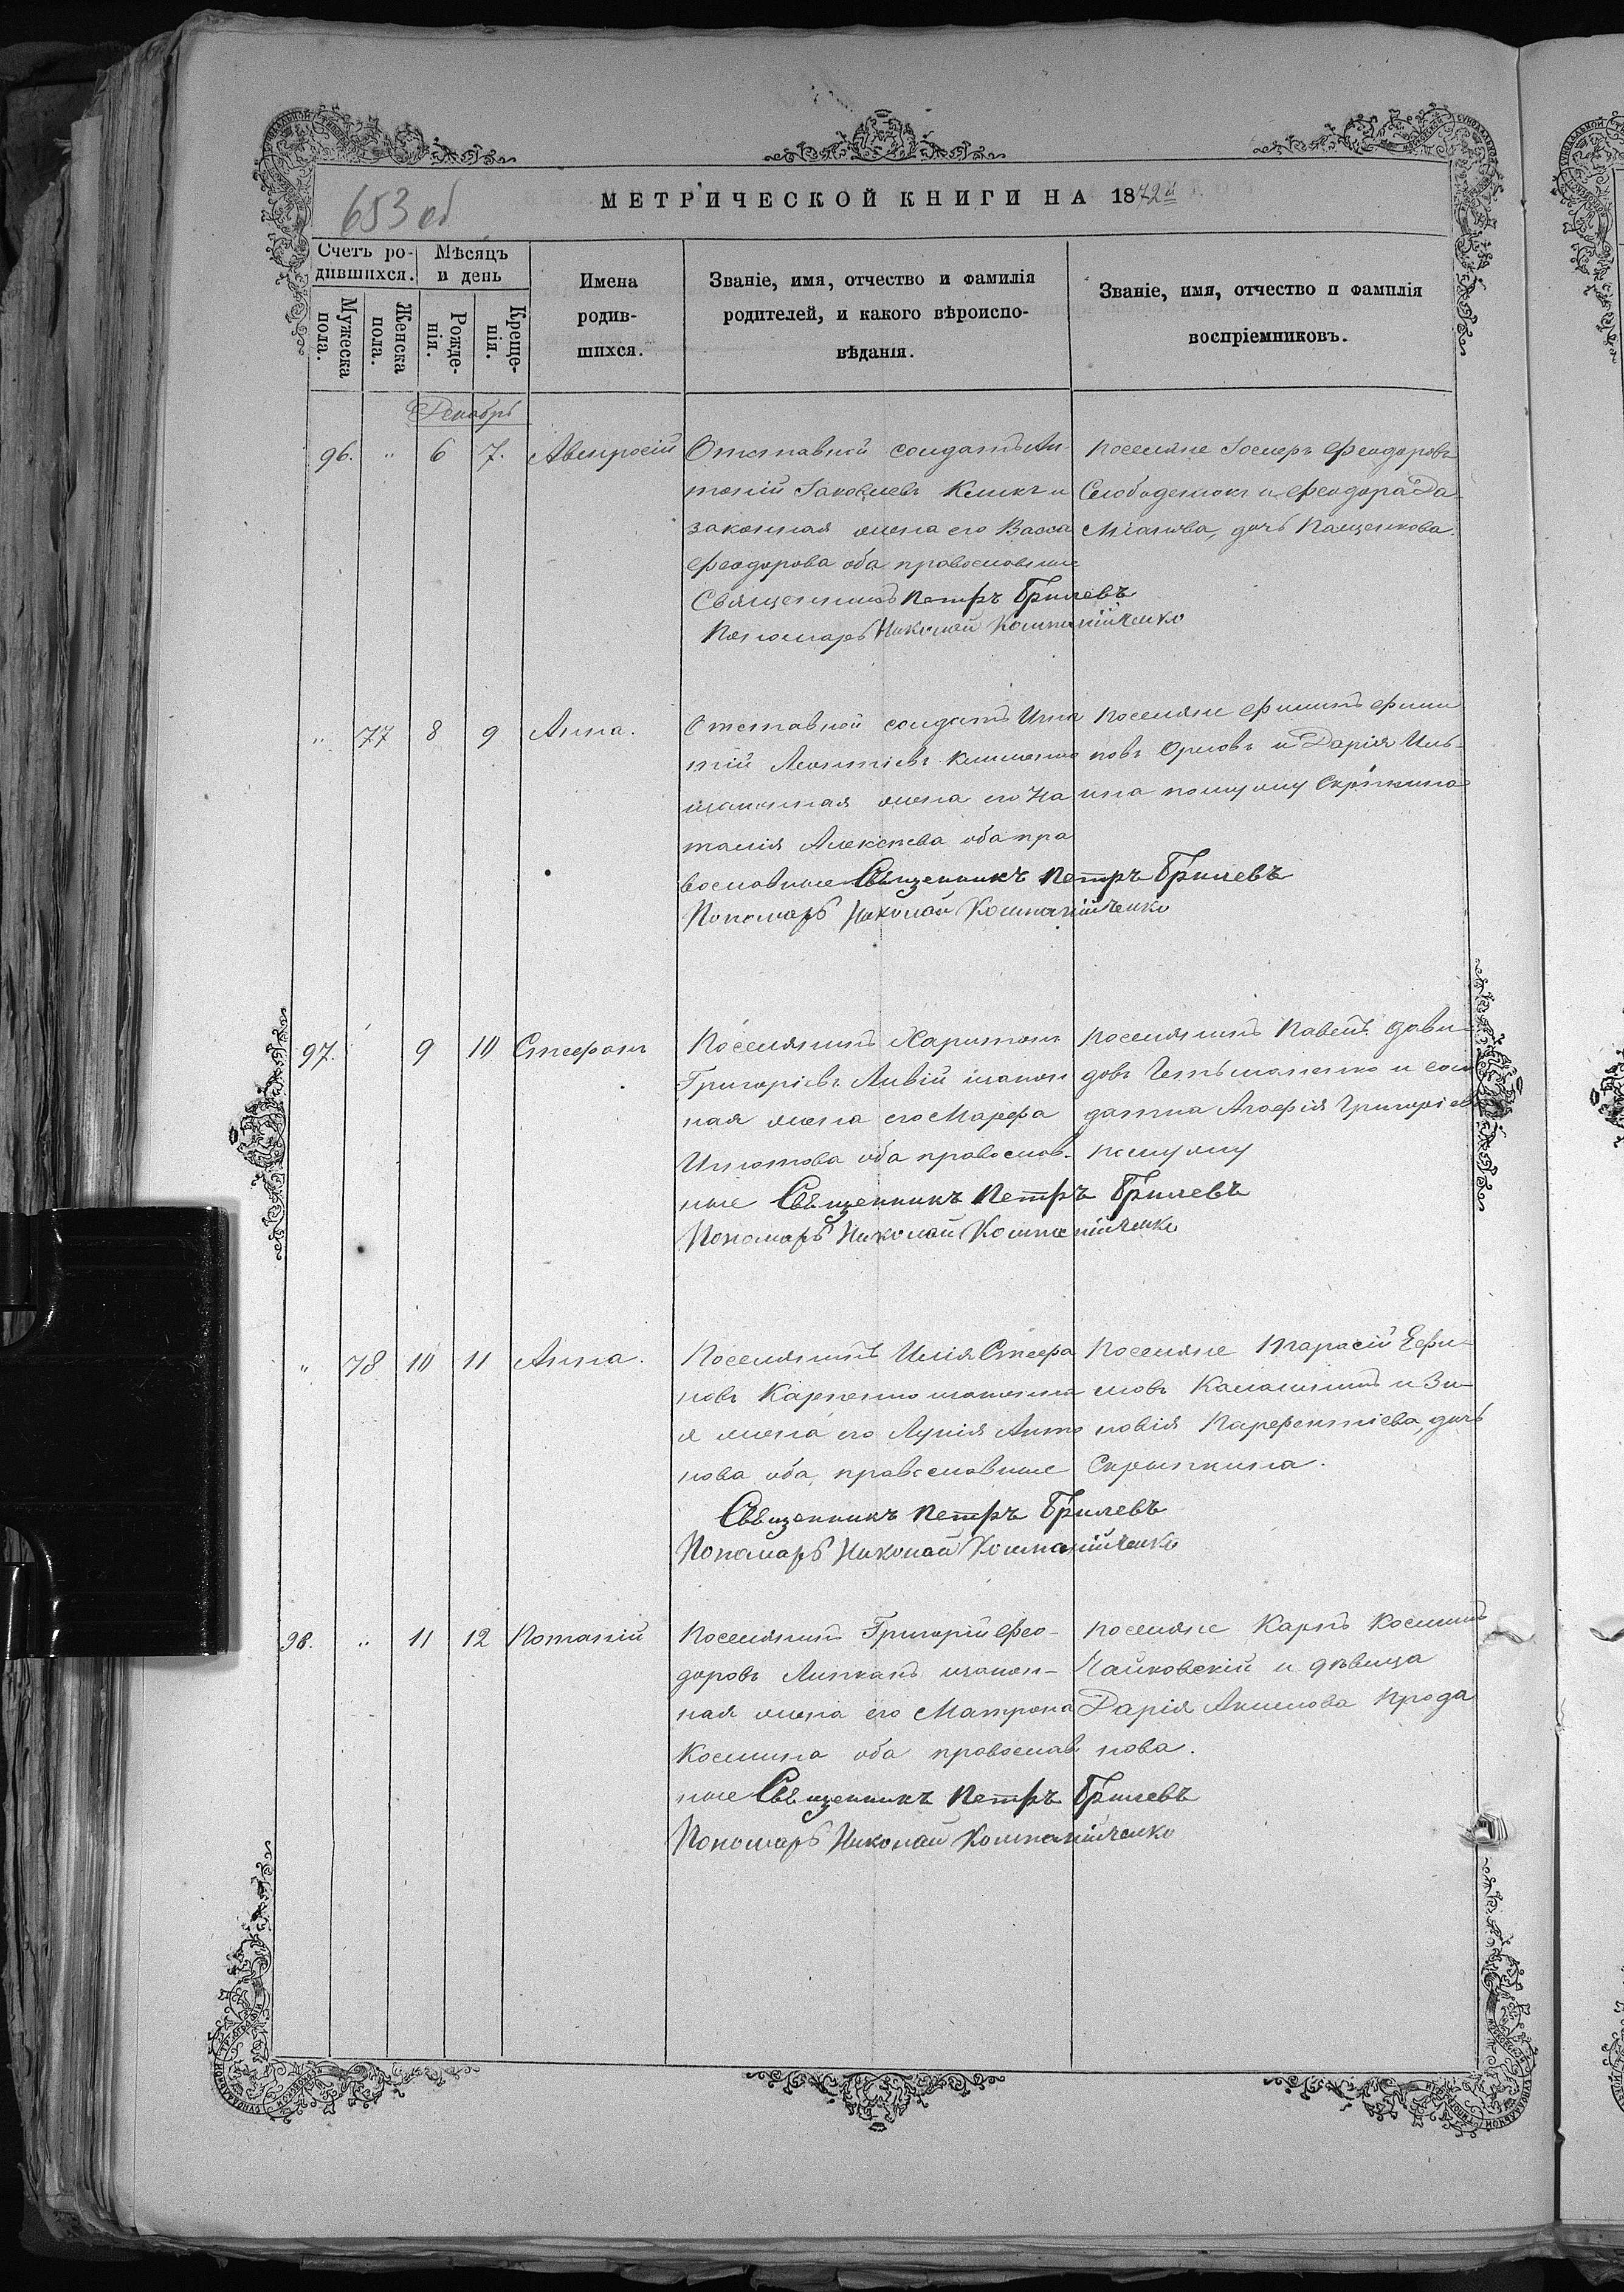 653 об
МЕТРИЧЕСКОЙ КНИГИ НА 1872й
Счетъ ро-
дившихся.
Мѣсяцъ
и день
Мужеска
пола.
Женска
пола.
Рожде-
нія.
Креще-
нія.
Имена
родив-
шихся.
Званіе, имя, отчество и фамилія
родителей, и какого вѣроиспо-
вѣданія.
Званіе, имя, отчество и фамилія
воспріемниковъ.
Декабрь
96. " 6 7. Амвросій
Отставной солдатъ Ан
тоній Іаковлевъ и
законная жена его Васса
Феодорова оба православные
Священникъ Петръ Брилевъ
Пономарь Николай Компанійченко
поселяне Іосифъ Феодоровъ
и Феодора Да
міанова, дочь Пащенкова.
" 77 8 9 Анна.
Отставной солдатъ Игна
тій Леонтіевъ
изаконная жена его На
талія Алексѣева оба пра
вославные Священникъ Петръ Брилевъ
Пономарь Николай Компанійченко
поселяне Филипъ Фили
повъ Орловъ и Дарія Иль-
ина помужу Скрыпкина
97. 9 10 Стефанъ
Поселянинъ Харитонъ
Григоріевъ Ливій изакон
ная жена его Марфа
Игнатова оба православ-
ные Священникъ Петръ Брилевъ
Пономарь Николай Компанійченко
поселянинъ Павелъ Дави-
довъ Гетьманенко и сол
датка Агафія Григоріева
помужу
" 78 10 11 Анна.
Поселянинъ Илія Стефа
новъ Карпенко изаконна
я жена его Лукія Анто
нова оба православные
Священникъ Петръ Брилевъ
Пономарь Николай Компанійченко
поселяне Тарасій Ефи-
мовъ Калашникъ и Зи-
новія Парфентіева, дочь
Скрыпкина.
98. " 11 12 Потапій
Поселянинъ Григорій Фео-
доровъ Липканъ изакон-
ная жена его Матрона
Космина оба православ
ные Священникъ Петръ Брилевъ
Пономарь Николай Компанійченко
поселяне Карпъ Косминъ
Чайковскій и дѣвица
Дарія Акимова Прода
нова.